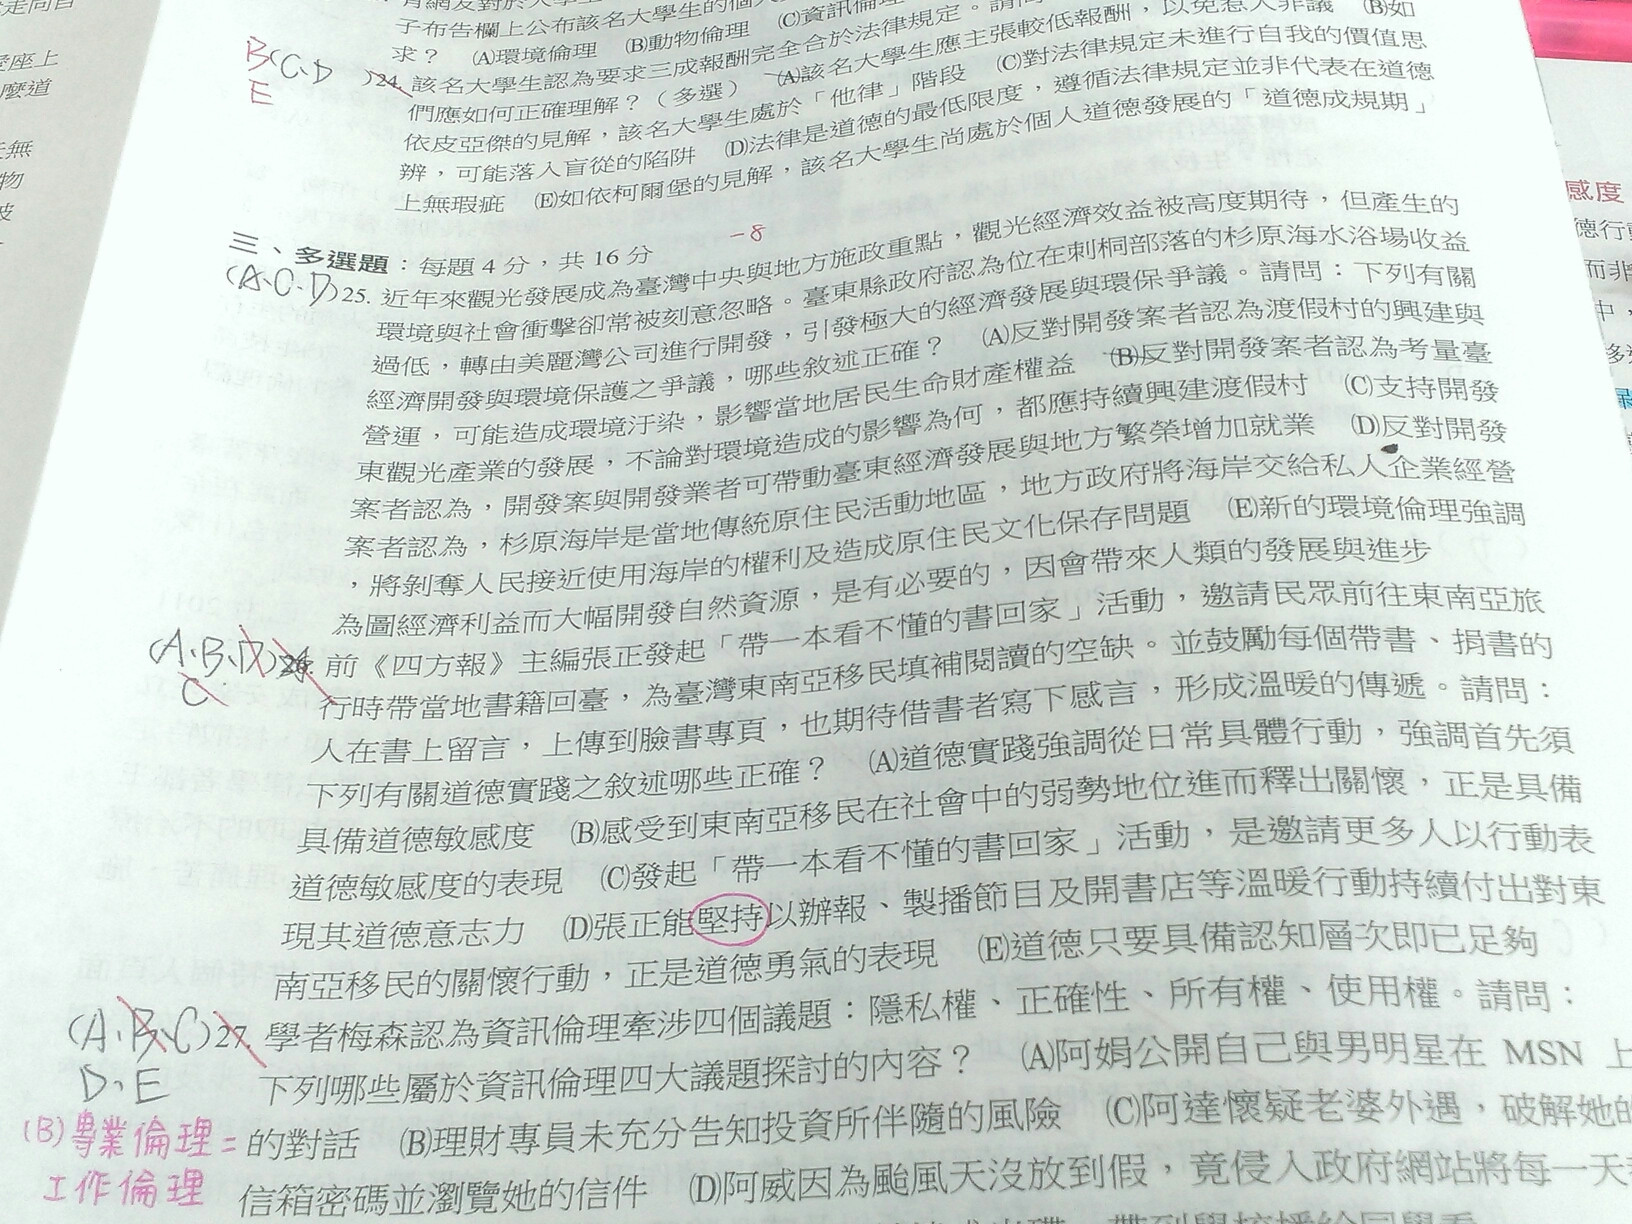 子布告欄上公布該名大學生的個人
求？ (A)環境倫理 (B)動物倫理 (C)資訊倫理
B(C.D )24. 該名大學生認為要求三成報酬完全合於法律規定。請問
E
們應如何正確理解？（多選） (A)該名大學生應主張較低報酬，以免惹人非議 (B)如
依皮亞傑的見解，該名大學生處於「他律」階段 (C)對法律規定未進行自我的價值思
辨，可能落入盲從的陷阱 (D)法律是道德的最低限度，遵循法律規定並非代表在道德
上無瑕疵 (E)如依柯爾堡的見解，該名大學生尚處於個人道德發展的「道德成規期」
-8
三、多選題：每題 4 分，共 16 分
(A.C.D)25. 近年來觀光發展成為臺灣中央與地方施政重點，觀光經濟效益被高度期待，但產生的
環境與社會衝擊卻常被刻意忽略。臺東縣政府認為位在刺桐部落的杉原海水浴場收益
過低，轉由美麗灣公司進行開發，引發極大的經濟發展與環保爭議。請問：下列有關
經濟開發與環境保護之爭議，哪些敘述正確？ (A)反對開發案者認為渡假村的興建與
營運，可能造成環境汙染，影響當地居民生命財產權益 (B)反對開發案者認為考量臺
東觀光產業的發展，不論對環境造成的影響為何，都應持續興建渡假村 (C)支持開發
案者認為，開發案與開發業者可帶動臺東經濟發展與地方繁榮增加就業 (D)反對開發
案者認為，杉原海岸是當地傳統原住民活動地區，地方政府將海岸交給私人企業經營
，將剝奪人民接近使用海岸的權利及造成原住民文化保存問題 (E)新的環境倫理強調
為圖經濟利益而大幅開發自然資源，是有必要的，因會帶來人類的發展與進步
(A.B.D)26. 前《四方報》主編張正發起「帶一本看不懂的書回家」活動，邀請民眾前往東南亞旅
C
行時帶當地書籍回臺，為臺灣東南亞移民填補閱讀的空缺。並鼓勵每個帶書、捐書的
人在書上留言，上傳到臉書專頁，也期待借書者寫下感言，形成溫暖的傳遞。請問：
下列有關道德實踐之敘述哪些正確？ (A)道德實踐強調從日常具體行動，強調首先須
具備道德敏感度 (B)感受到東南亞移民在社會中的弱勢地位進而釋出關懷，正是具備
道德敏感度的表現 (C)發起「帶一本看不懂的書回家」活動，是邀請更多人以行動表
現其道德意志力 (D)張正能堅持以辦報、製播節目及開書店等溫暖行動持續付出對東
南亞移民的關懷行動，正是道德勇氣的表現 (E)道德只要具備認知層次即已足夠
(A.B.C)27. 學者梅森認為資訊倫理牽涉四個議題：隱私權、正確性、所有權、使用權。請問：
D.E
下列哪些屬於資訊倫理四大議題探討的內容？ (A)阿娟公開自己與男明星在 MSN 上
的對話 (B)理財專員未充分告知投資所伴隨的風險 (C)阿達懷疑老婆外遇，破解她的
信箱密碼並瀏覽她的信件 (D)阿威因為颱風天沒放到假，竟侵入政府網站將每一天
(B)專業倫理=
工作倫理
感度